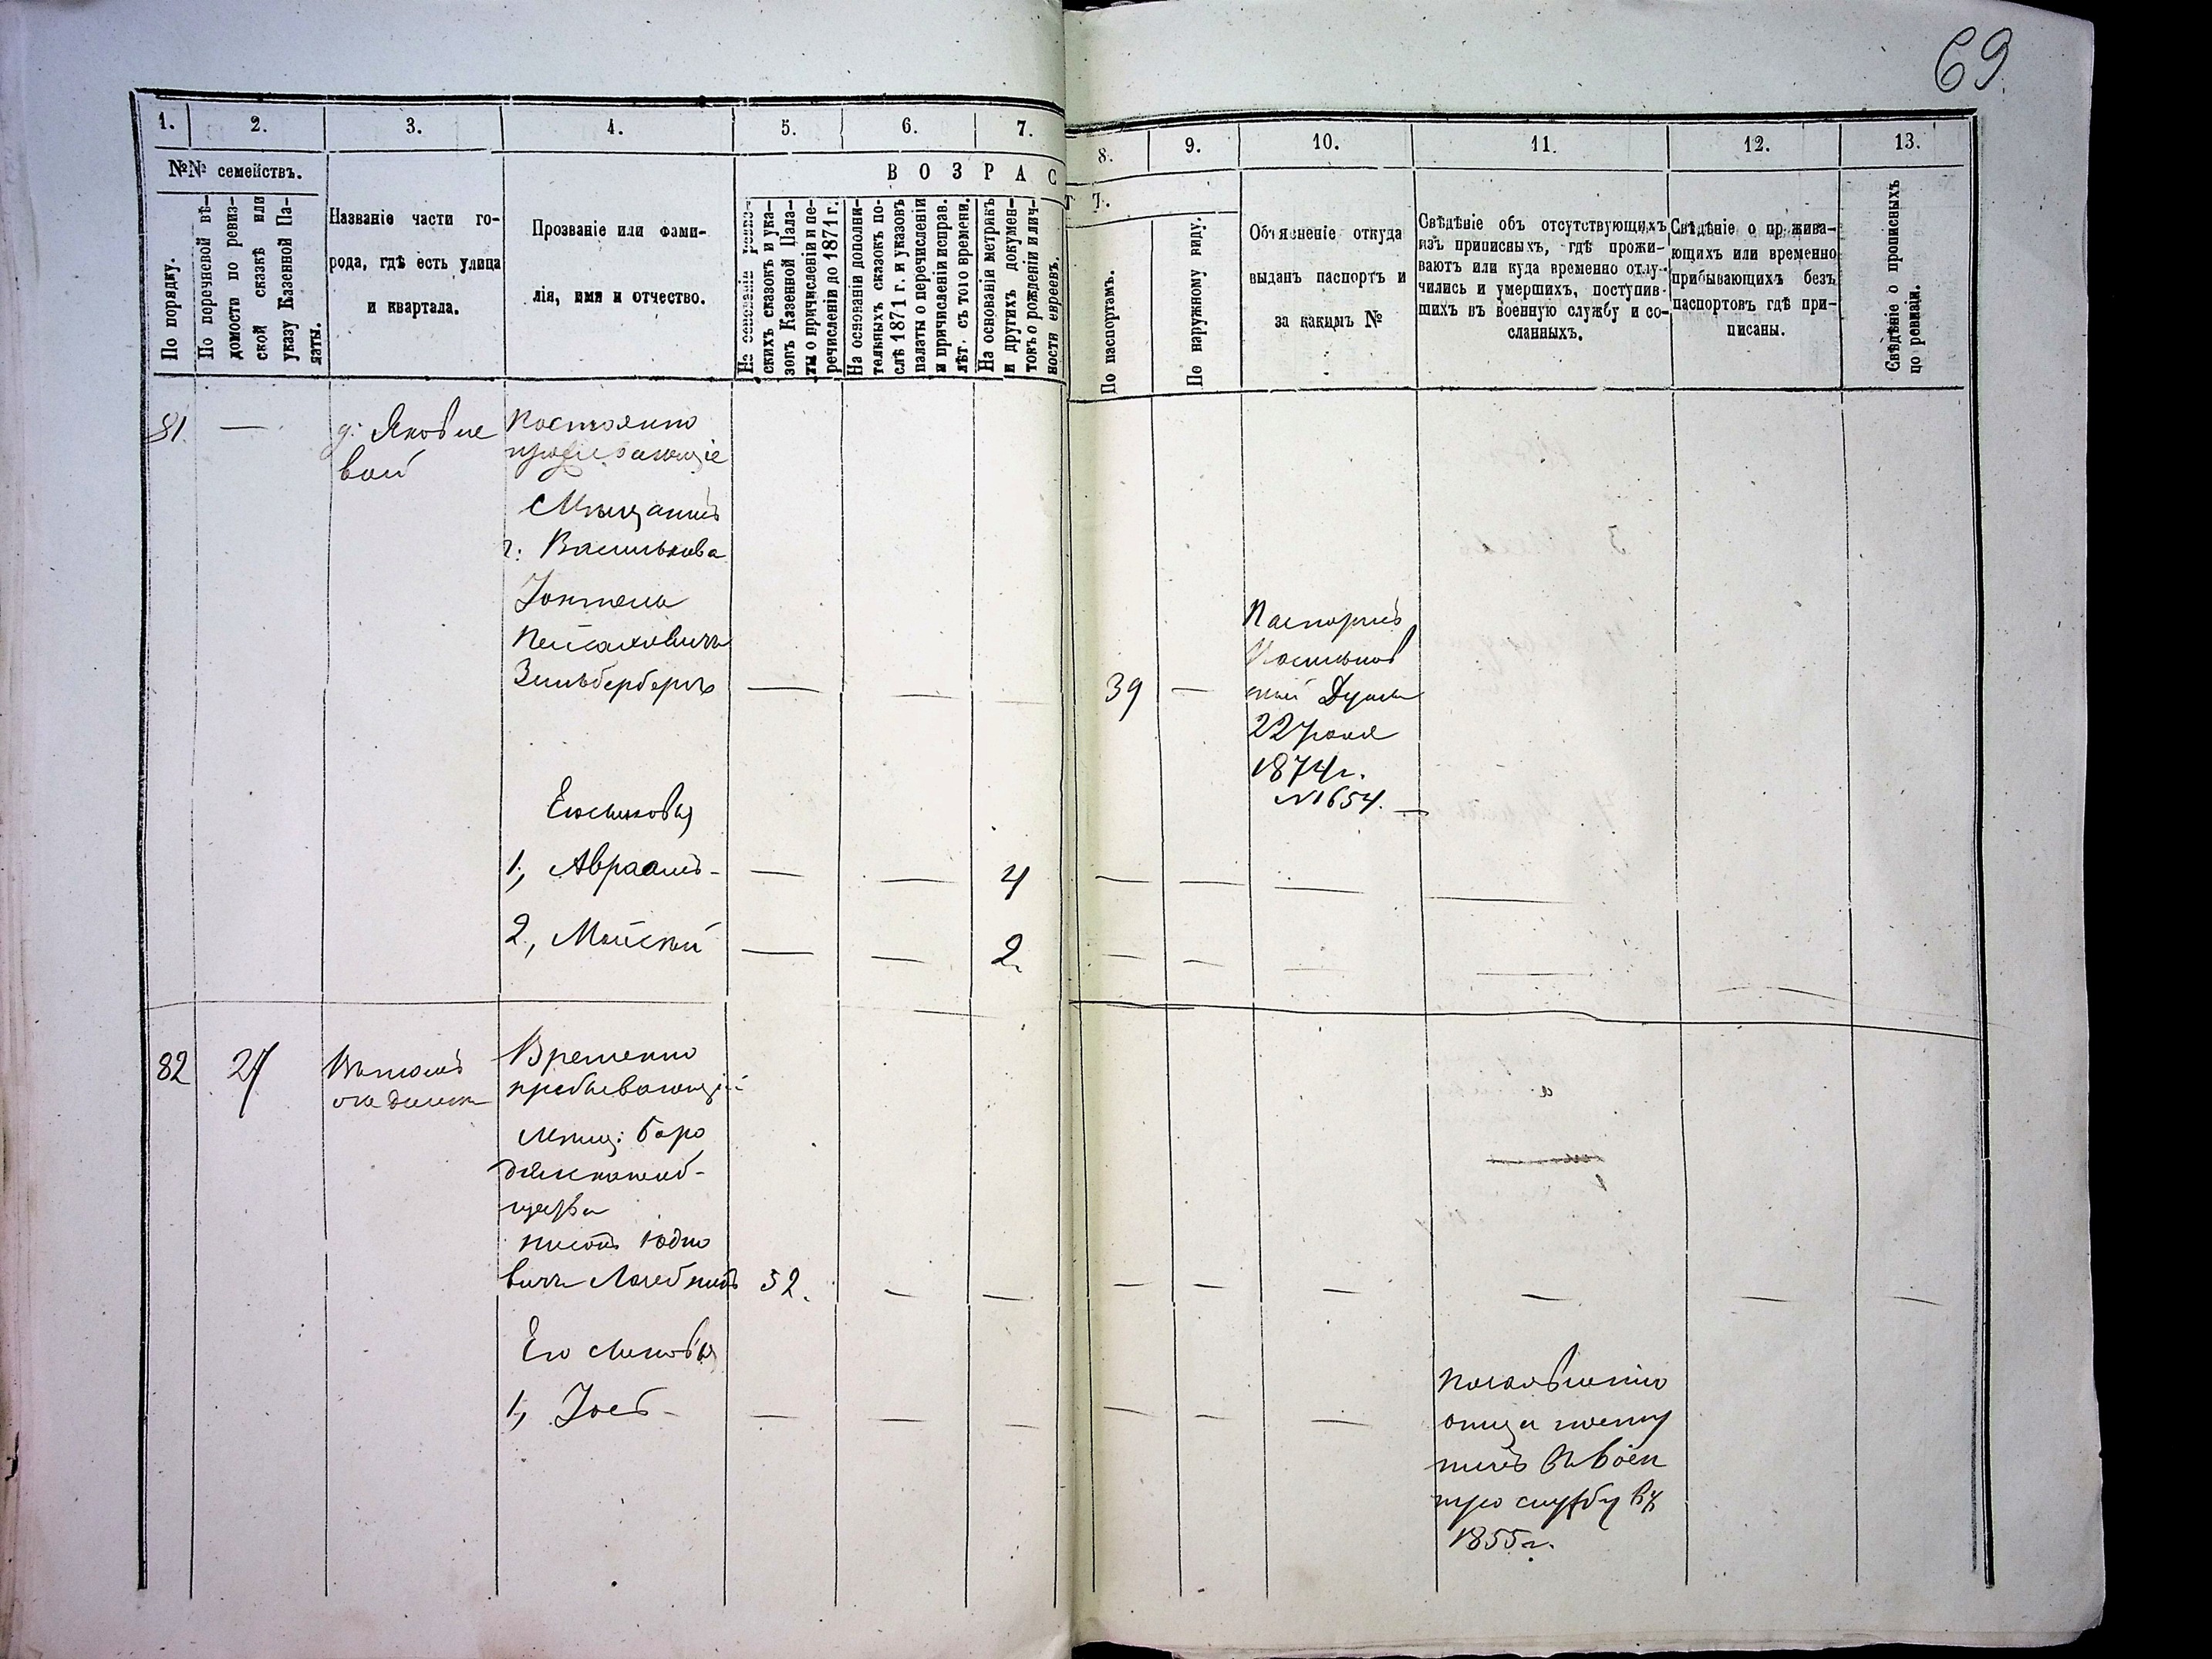 69
1.
2.
3.
4.
5.
6.
7.
8.
9.
10.
11.
12.
13.
№№ семействъ.
По порядку.
По перечневой вѣ-
домости по ревиз-
ской сказкѣ или
указу Казенной Па-
латы.
Названіе части го-
рода, гдѣ есть улица
и квартала.
Прозваніе или фами-
лія, имя и отчество.
ВОЗРАС
Т Ъ.
На основаніи ревиз-
скихъ сказокъ и ука-
зовъ Казенной Пала-
ты о причисленіи и пе-
речисленіи до 1871 г.
На основаніи дополни-
тельныхъ сказокъ по-
слѣ 1871 г. и указовъ
палаты о перечисленіи
и причисленіи исправ.
лѣт. съ того времени.
На основаніи метрикъ
и другихъ докумен-
товъ о рожденіи и лич-
ности евреевъ.
По паспортамъ.
По наружному виду.
Объясненіе откуда
выданъ паспортъ и
за какимъ №
Свѣдѣніе объ отсутствующихъ
изъ приписныхъ, гдѣ прожи-
ваютъ или куда временно отлу-
чились и умершихъ, поступив-
шихъ въ военную службу и со-
сланныхъ.
Свѣдѣніе о прожива-
ющихъ или временно
прибывающихъ безъ
паспортовъ гдѣ при-
писаны.
Свѣдѣніе о прописныхъ
по ревизіи.
81. —
д: Яковле
вой
Постоянно
Мѣщанинъ
г. Василькова
Пейсаховичъ
Зильбербергъ — —
39 —
Паспортъ
Васильков
ской Думы
22 Іюня
1874 г.
№ 1654. —
Его сыновья
1, Авраамъ - — — 4 — — — —
2, Мойсей — — 2. — — — —
82 27
Временно
пребывающій
мѣщ: Боро
дянскаго об-
щества
Юдко
вичъ 52. — — — — — — — —
Его сыновья
1, Іосъ - — — — — — —
По заявленію
отца посту
пилъ въ воен
ную службу въ
1855 г.